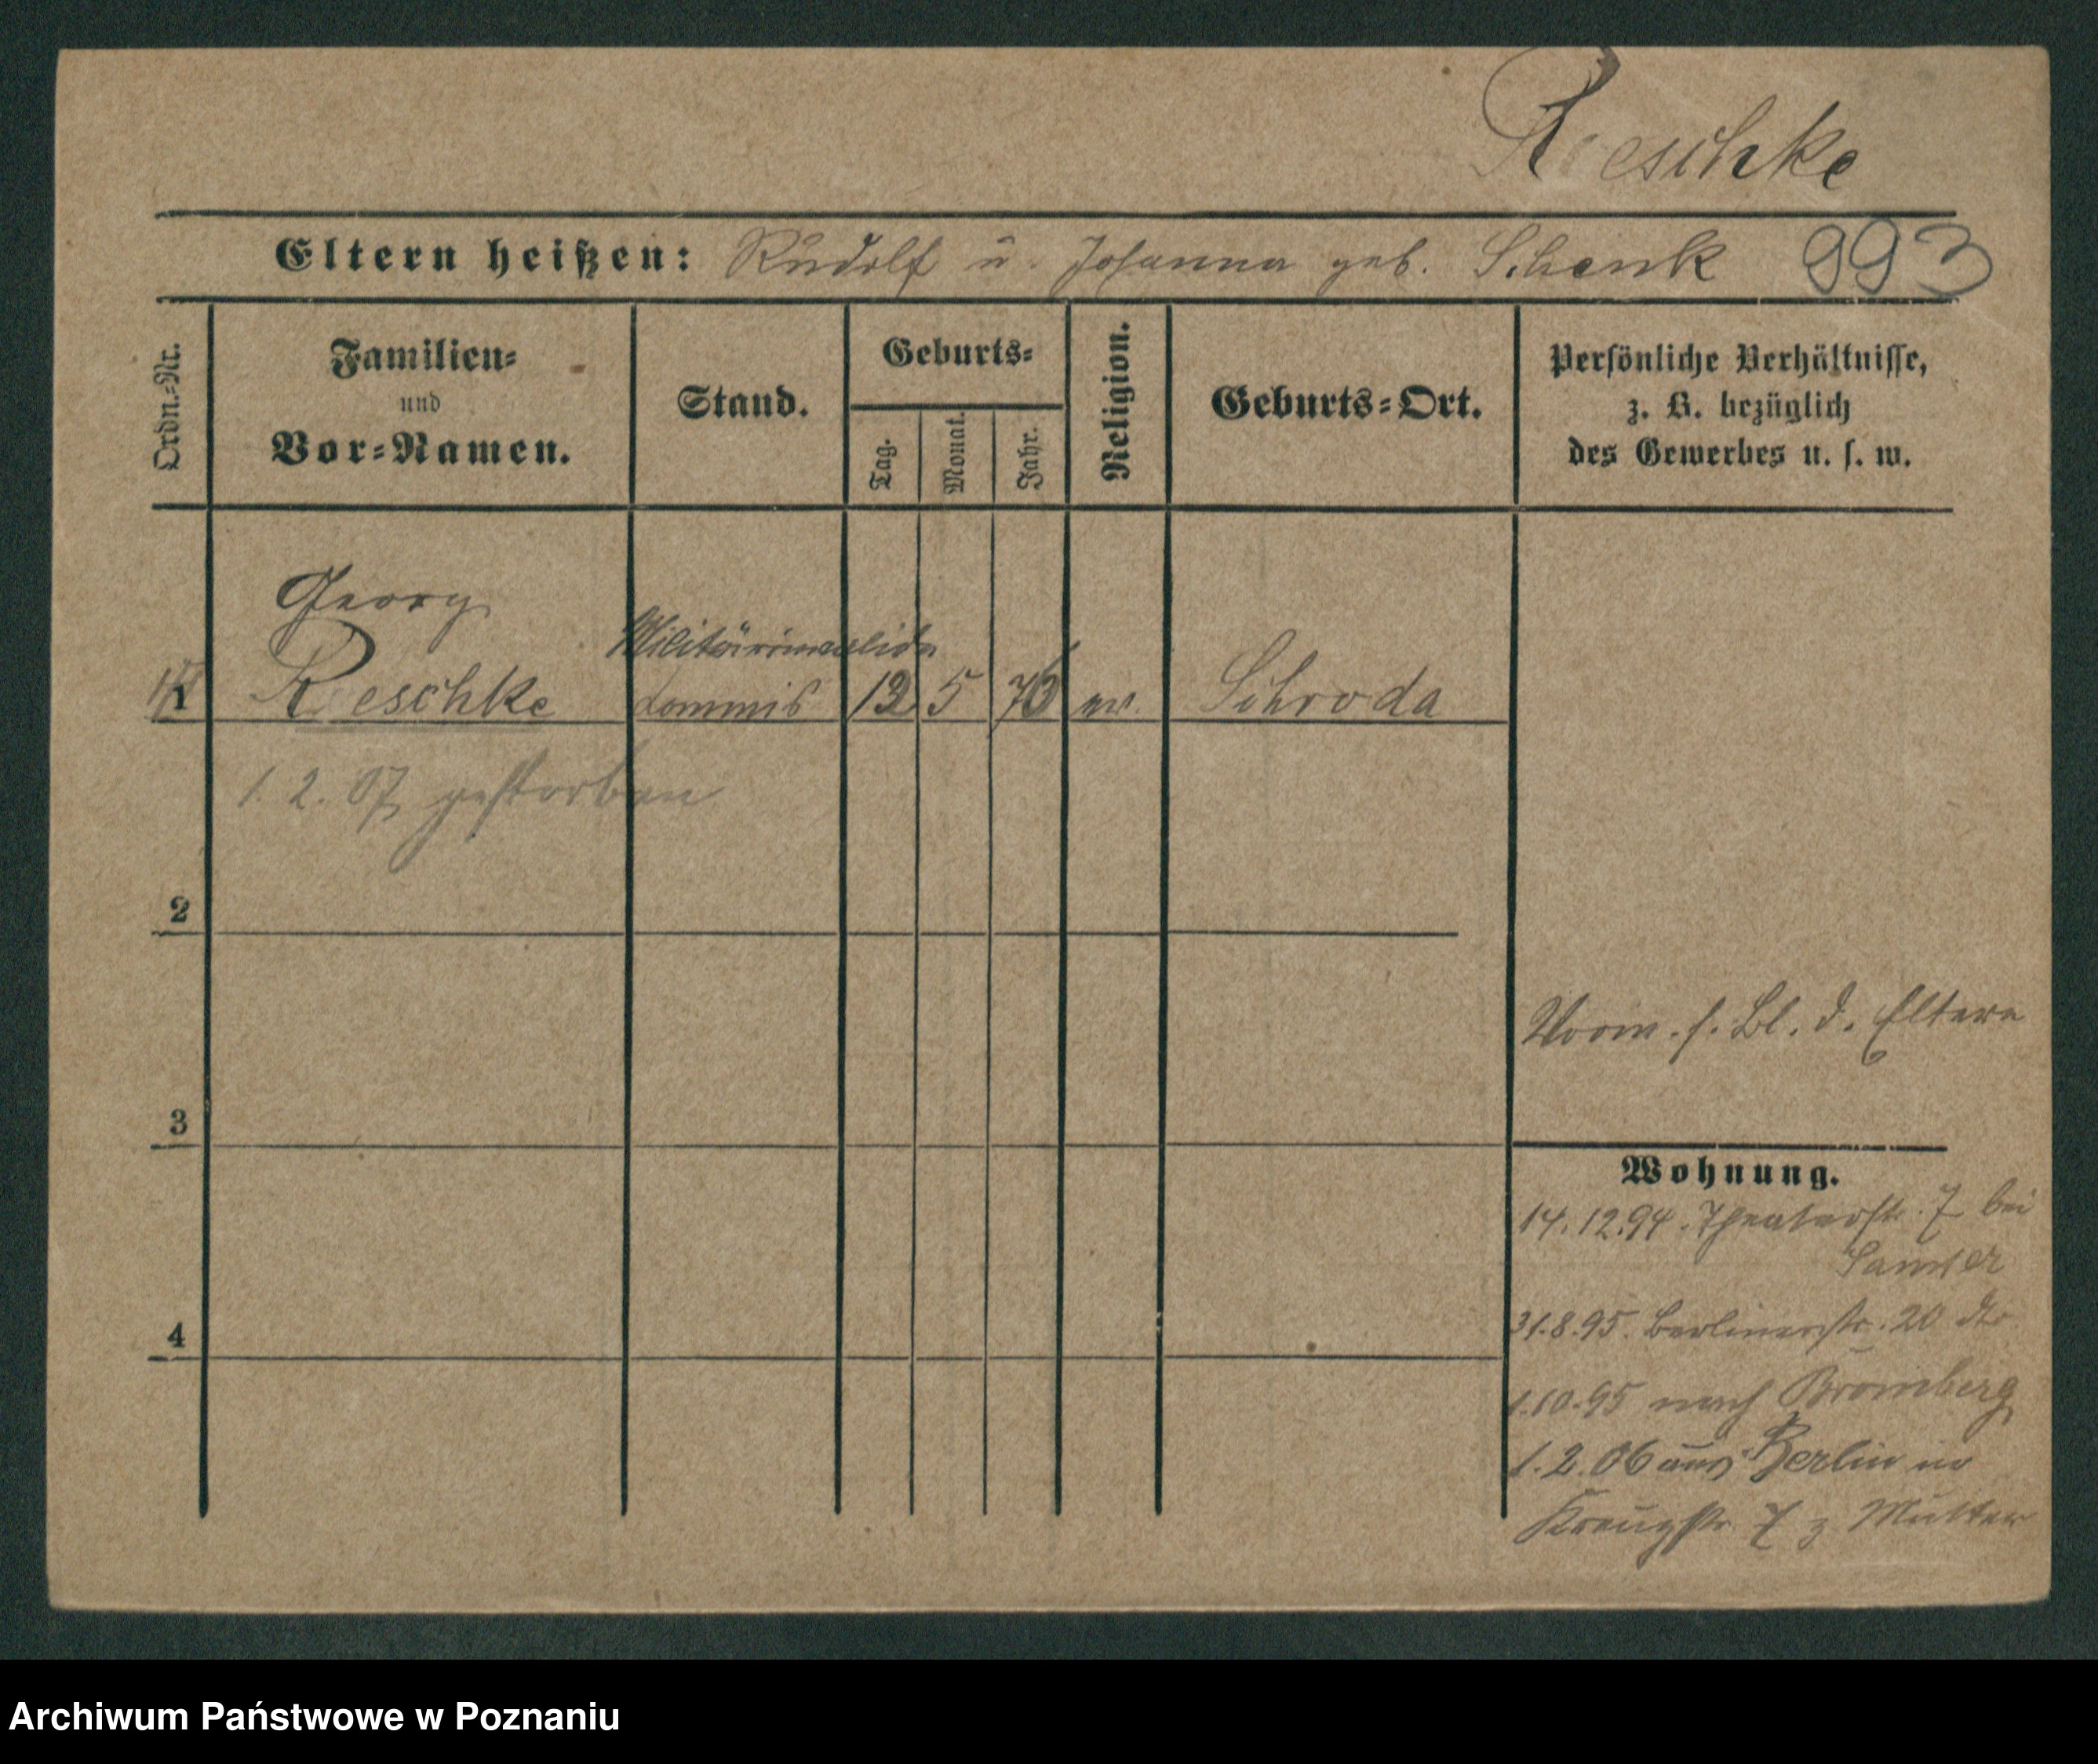 Reschke
Eltern heißen: Rudolf u. Johanna geb. Schenk 993
Ordn.=Nr.
Familien=
und
Vor=Namen.
Stand.
Geburts=
Tag.
Monat.
Jahr.
Religion.
Geburts=Ort.
Persönliche Verhältnisse,
z. B. bezüglich
des Gewerbes u. s. w.
Georg
Militärinvalide
1 Reschke Commis 5 76 ev. Schroda
1. 2. 07 gestorben
2
3
4
Vorm. s. Bl. d. Eltern
Wohnung.
14.12.94. Theaterstr. 7 bei
Samter
31.8.95. Berlinerstr. 20
1.10.95 nach Bromberg
1.2.06 aus Berlin in
Kreuzstr. 7 z Mutter
Archiwum Państwowe w Poznaniu